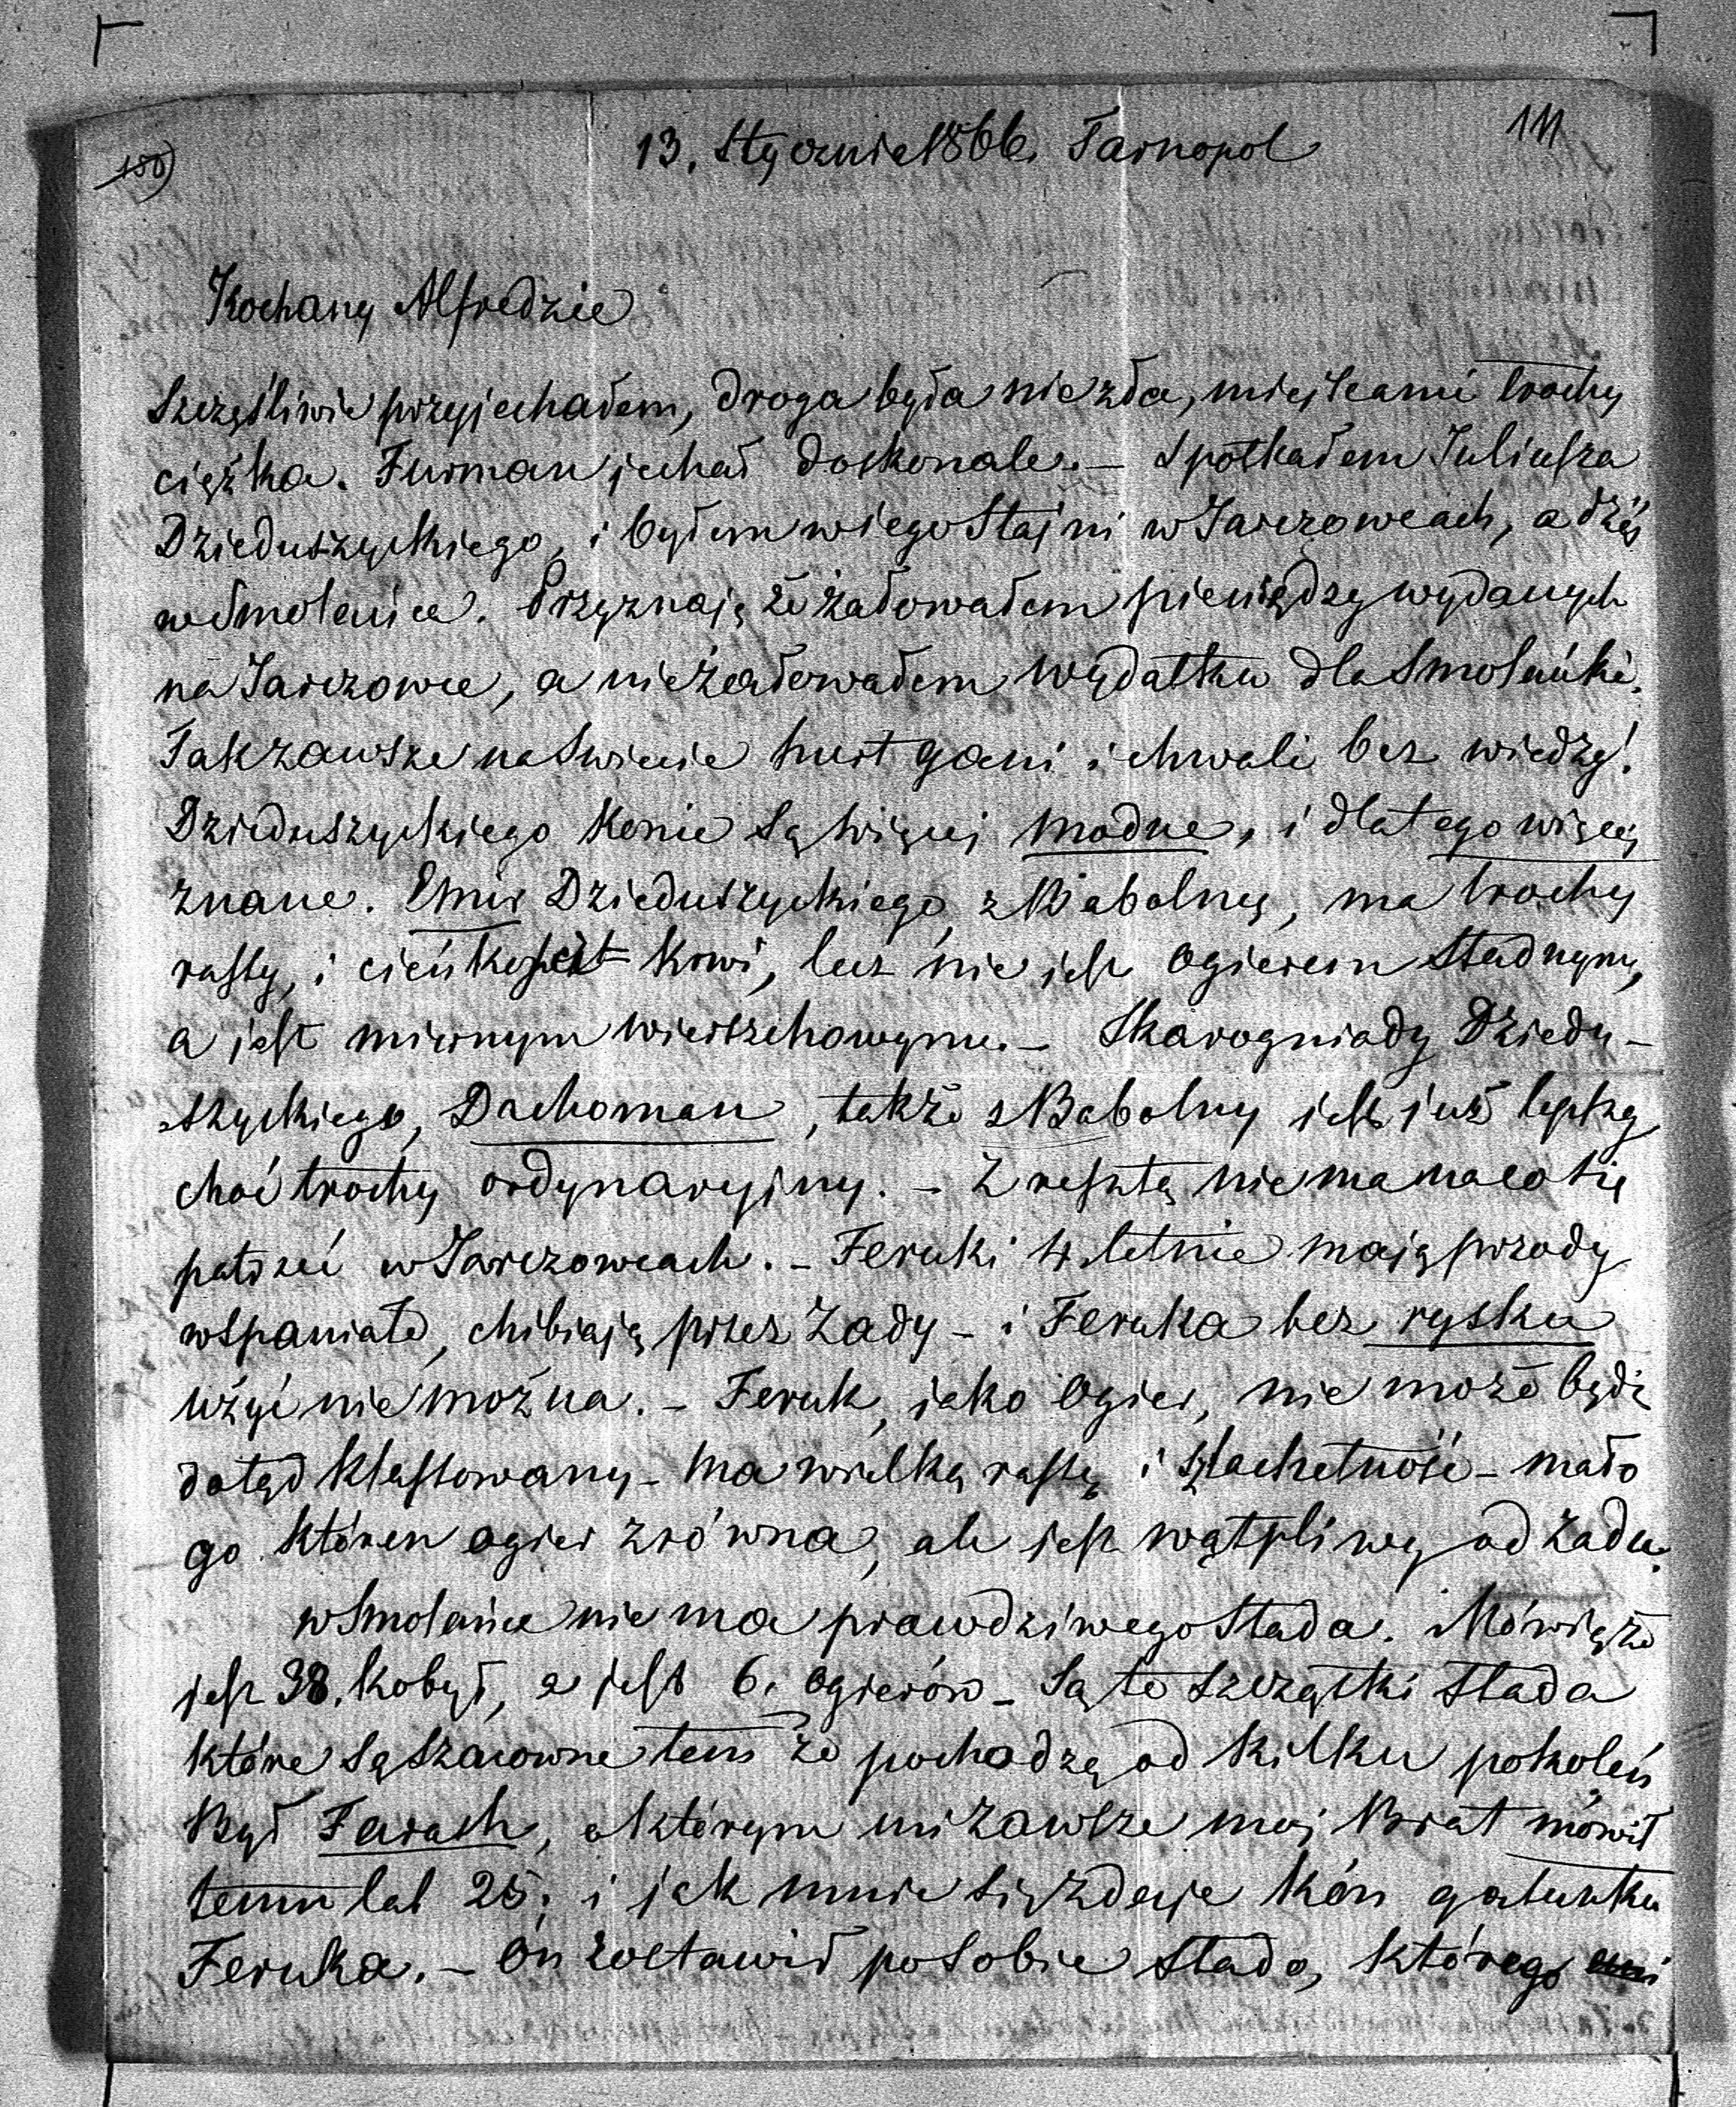 111
13. Stycznia 1866. Tarnopol
Kochany Alfredzie
Szczęśliwie przyjechałem, droga była nie zła, miejscami trochę
ciężka. Furman jechał doskonale. – Spotkałem Juliusza
Dzieduszyckiego, i byłem w iego Stajni w Jarczowcach, a dziś
w Smolance. Przyznaję że żałowałem pieniędzy wydanych
na Jarczowce, a nie żałowałem wydatku dla Smolanki.
Tak zawsze na Swiecie hurt gani i chwali bez wiedzy!
Dzieduszyckiego Konie są więcej modne, i dlatego więcej
znane. Emir Dzieduszyckiego z Babolny, ma trochę
rassy, i cieńkość krwi, lecz nie jest ogierem Stadnym,
a jest miernym wierzchowym. – Skarogniady Dziedu-
szyckiego, Dachoman, także z Babolny jest już lepszy
choć trochę ordynaryjny. – Z resztą nie ma na co się
patrzeć w Jarczowcach. – Feruki 4 letnie mają przody
wspaniałe, chibiają przez Zady – i Feruka bez rysku
użyć nie można. – Feruk, jako Ogier, nie może bydź
dotąd klassowany – ma wielką rassę i szlachetność – mało
go któren ogier zrówna, ale jest wątpliwy od zadu.
w Smolance nie ma prawdziwego Stada. Mówią że
jest 38. kobył, a jest 6. Ogierów – Są to szczątki Stada
które są szanowne tem że pochodzą od kilku pokoleń
Był Farash, o którym mi zawsze mój Brat mówił
temu lat 25; i jak mnie się zdaje kón gatunku
Feruka. – On zostawił po Sobie Stado, którego